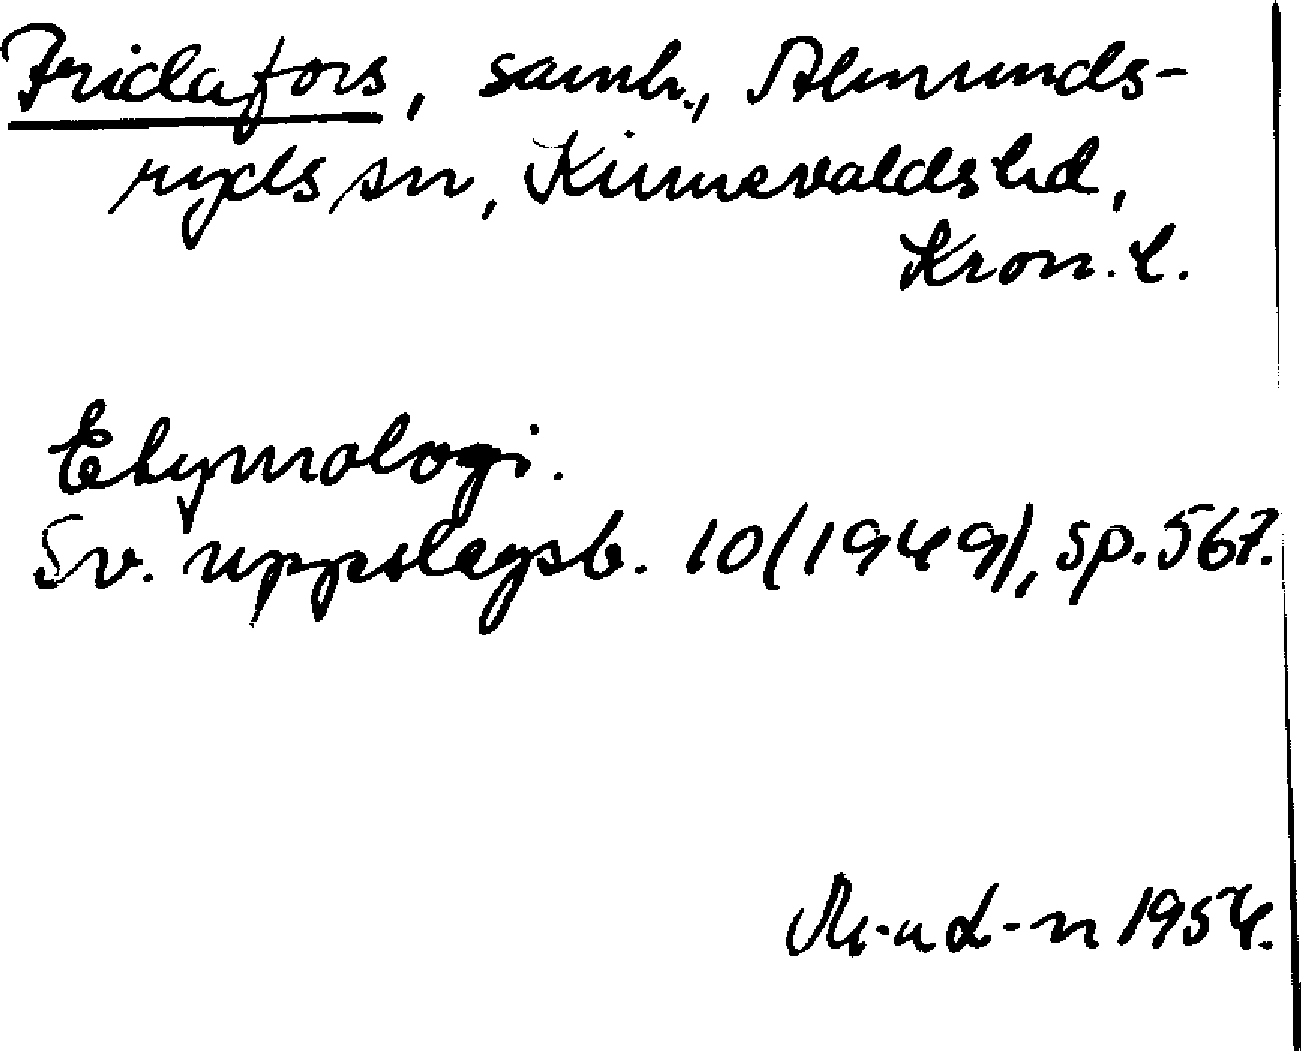 Fridafors, samh., Almunds-
ryds sn, Kinnevalds hd,
Kron. l.
Etymologi.
Sv. uppslagsb. 10 (1949), sp. 567.
1954.